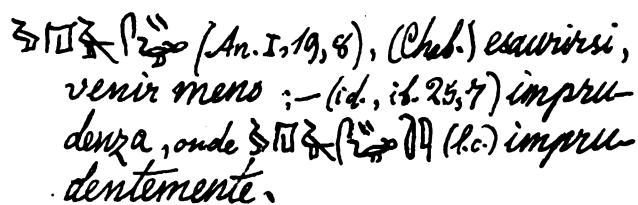 (An. I, 19, 8), (Chab.) esaurirsi,
venir meno ;— (id., ib. 25, 7) impru-
denza, onde (l.c.) impru-
dentemente.